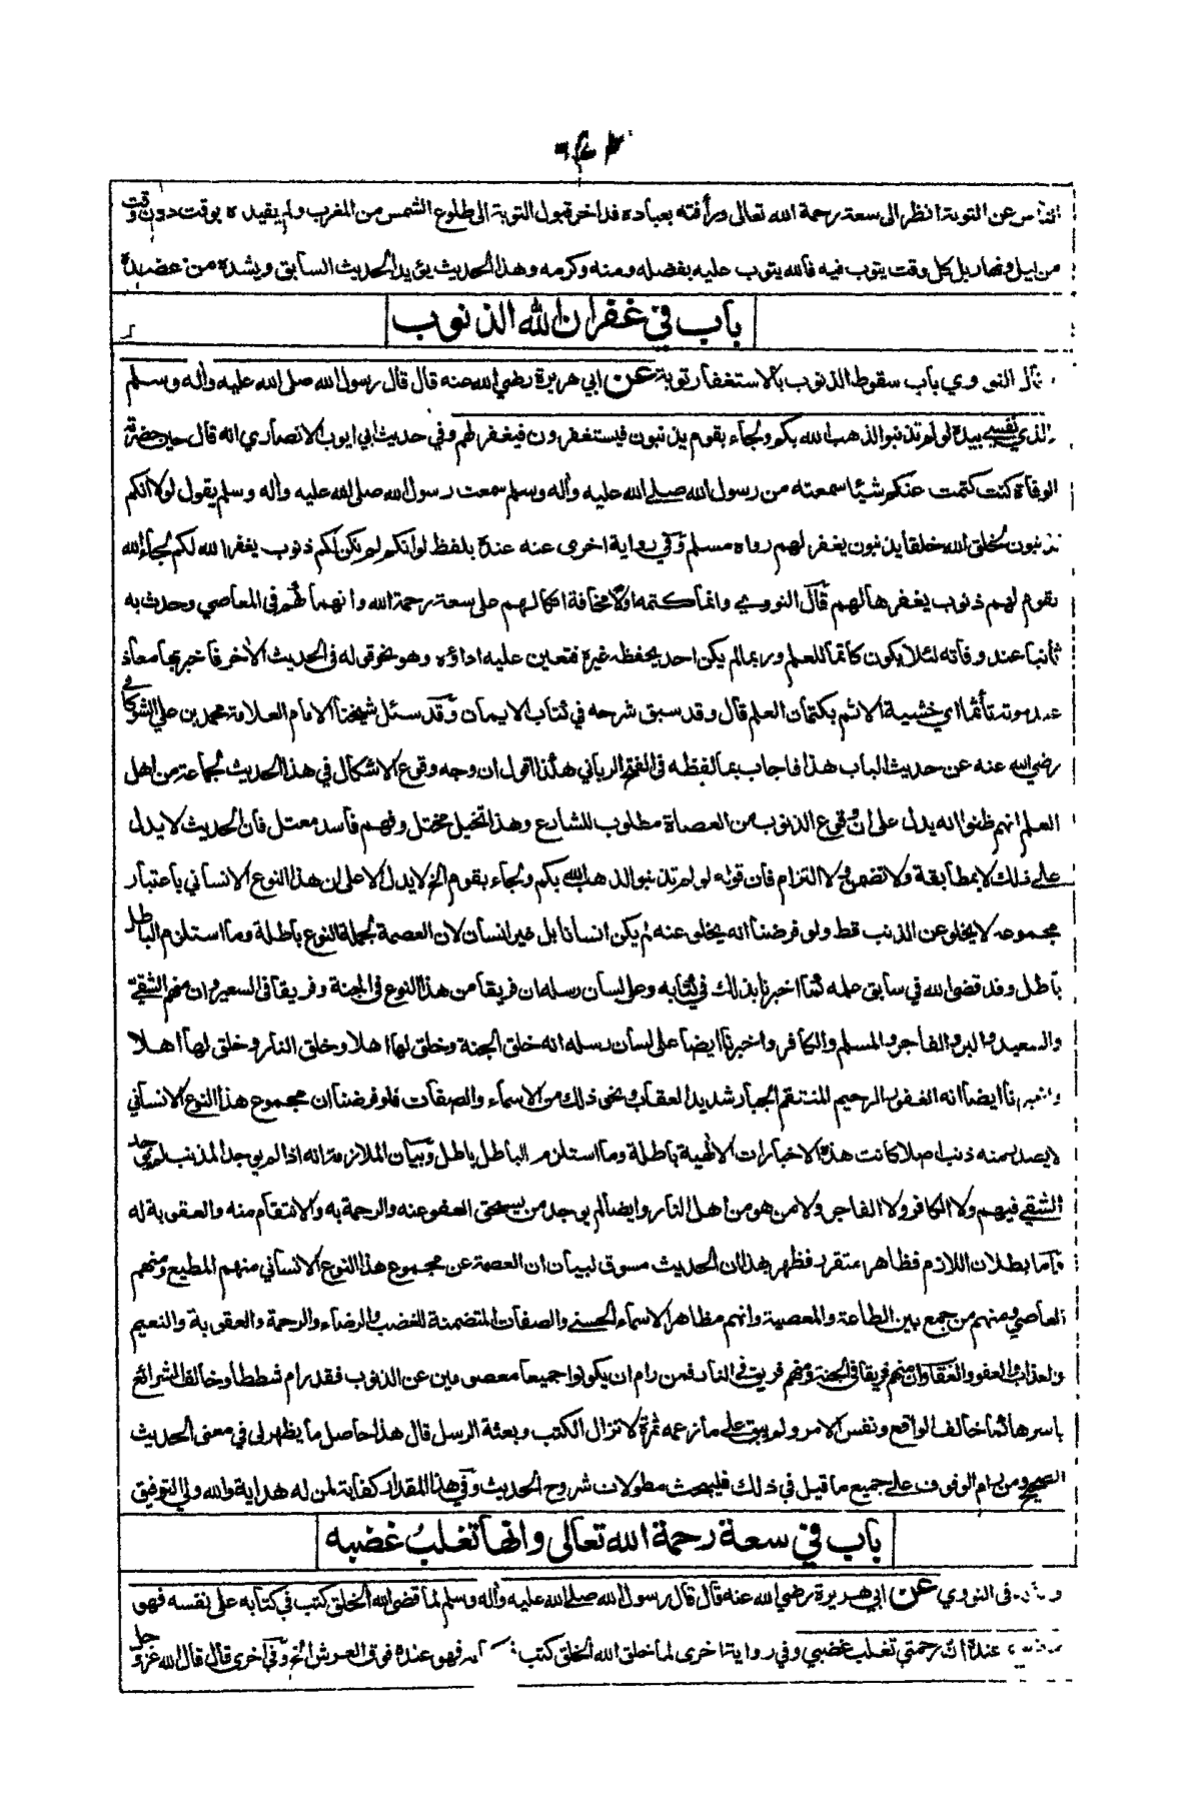 الناس عن التوبة انظر الى سعة رحمة الله تعالى ورأفته بعباده فداخر قبول التوبة الى طلوع الشمس من المغرب ولم يقيده بوقت دون وقت
من ليل ونهار بل كل وقت يتوب فيه فالله يتوب عليه بفضله ومنه وكرمه وهذا الحديث يؤيد الحديث السابق ويشده من عضده
باب في غفران الله الذنوب
وقال النووي باب سقوط الذنوب بالاستغفار توبة عن ابي هريرة رضي الله عنه قال قال رسول الله صلى الله عليه وأله وسلم
والذي نفسي بيده لو لم تذنبوا لذهب الله بكم ولجاء بقوم يذنبون فيستغفرون فيغفر لهم وفي حديث ابي ايوب الانصاري انه قال حين حضرته
الوفاة كنت كتمت عنكم شيئا سمعته من رسول الله صلى الله عليه وأله وسلم سمعت رسول الله صلى الله عليه وأله وسلم يقول لولا انكم
تذنبون لخلق الله خلقا يذنبون يغفر لهم رواه مسلم وفي رواية اخرى عنه عنده بلفظ لو انكم لم تكن لكم ذنوب يغفر الله لكم لجاء الله
بقوم لهم ذنوب يغفرها لهم قال النووي وانما كتمه اولا مخافة اتكالهم على سعة رحمة الله وانهماكهم في المعاصي وحدث به
ثانيا عند وفاته لئلا يكون كاتما للعلم وربما لم يكن احد يحفظه غيره فتعين عليه اداؤه وهو نحو قوله في الحديث الأخر فاخبر بها معاذ
عند موته تأثما اي خشية الاثم بكتمان العلم قال وقد سبق شرحه في كتاب الايمان وقد سئل شيخنا الامام العلامة محمد بن علي الشوكاني
رضي الله عنه عن حديث الباب هذا فاجاب بما لفظه في الفتح الرباني هكذا اقول ان وجه وقوع الاشكال في هذا الحديث لجماعة من اهل
العلم انهم ظنوا انه يدل على ان وقوع الذنوب من العصاة مطلوب للشارع وهذا تخيل مختل وفهم فاسد معتل فان الحديث لا يدل
على ذلك لا بمطابقة ولا تضمن ولا التزام فان قوله لو لم تذنبوا لذهب الله بكم ولجاء بقوم الخ لا يدل الا على ان هذا النوع الانساني باعتبار
مجموعه لا يخلو عن الذنب قط ولو فرضنا انه يخلو عنه لم يكن انسانا بل غير انسان لان العصمة لجملة النوع باطلة وما استلزم الباطل
باطل وقد قضى الله في سابق علمه كما اخبرنا بذلك في كتابه وعلى لسان رسله ان فريقا من هذا النوع في الجنة وفريقا في السعير وان منهم الشقي
والسعيد والبر والفاجر والمسلم والكافر واخبرنا ايضا على لسان رسله انه خلق الجنة وخلق لها اهلا وخلق النار وخلق لها اهلا
واخبرنا ايضا انه الغفور الرحيم المنتقم الجبار شديد العقاب ونحو ذلك من الاسماء والصفات فلو فرضنا ان مجموع هذا النوع الانساني
لا يصدر منه ذنب اصلا كانت هذه الاخبارات الالهية باطلة وما استلزم الباطل باطل وبيان الملازمة انه اذا لم يوجد المذنب لم يوجد
الشقي فيهم ولا الكافر ولا الفاجر ولا من هو من اهل النار وايضا لم يوجد من يستحق العفو عنه والرحمة به والانتقام منه والعقوبة له
واما بطلان اللازم فظاهر متقرر فظهر بهذا ان الحديث مسوق لبيان ان العصمة عن مجموع هذا النوع الانساني منهم المطيع ومنهم
العاصي ومنهم من جمع بين الطاعة والمعصية وانهم مظاهر الاسماء الحسنى والصفات المتضمنة للغضب والرضاء والرحمة والعقوبة والنعيم
والعذاب والعفو والعقاب وان منهم فريقا في الجنة ومنهم فريق في النار فمن رام ان يكونوا جميعا معصومين عن الذنوب فقد رام شططا وخالف الشرائع
باسرها كما خالف الواقع ونفس الامر ولم يبق على ما زعمه ثمرة لانزال الكتب وبعثة الرسل قال هذا حاصل ما يظهر لي في معنى الحديث
الصحيح ومن رام الوقوف على جميع ما قيل في ذلك فليبحث مطولات شروح الحديث وفي هذا المقدار كفاية لمن له هداية والله ولي التوفيق
باب في سعة رحمة الله تعالى وانها تغلب غضبه
في النووي عن ابي هريرة رضي الله عنه قال قال رسول الله صلى الله عليه وأله وسلم لما قضى الله الخلق كتب في كتابه على نفسه فهو
عنده ان رحمتي تغلب غضبي وفي رواية اخرى لما خلق الله الخلق كتب فهو عنده فوق العرش الخ وفي اخرى قال قال الله عز وجل